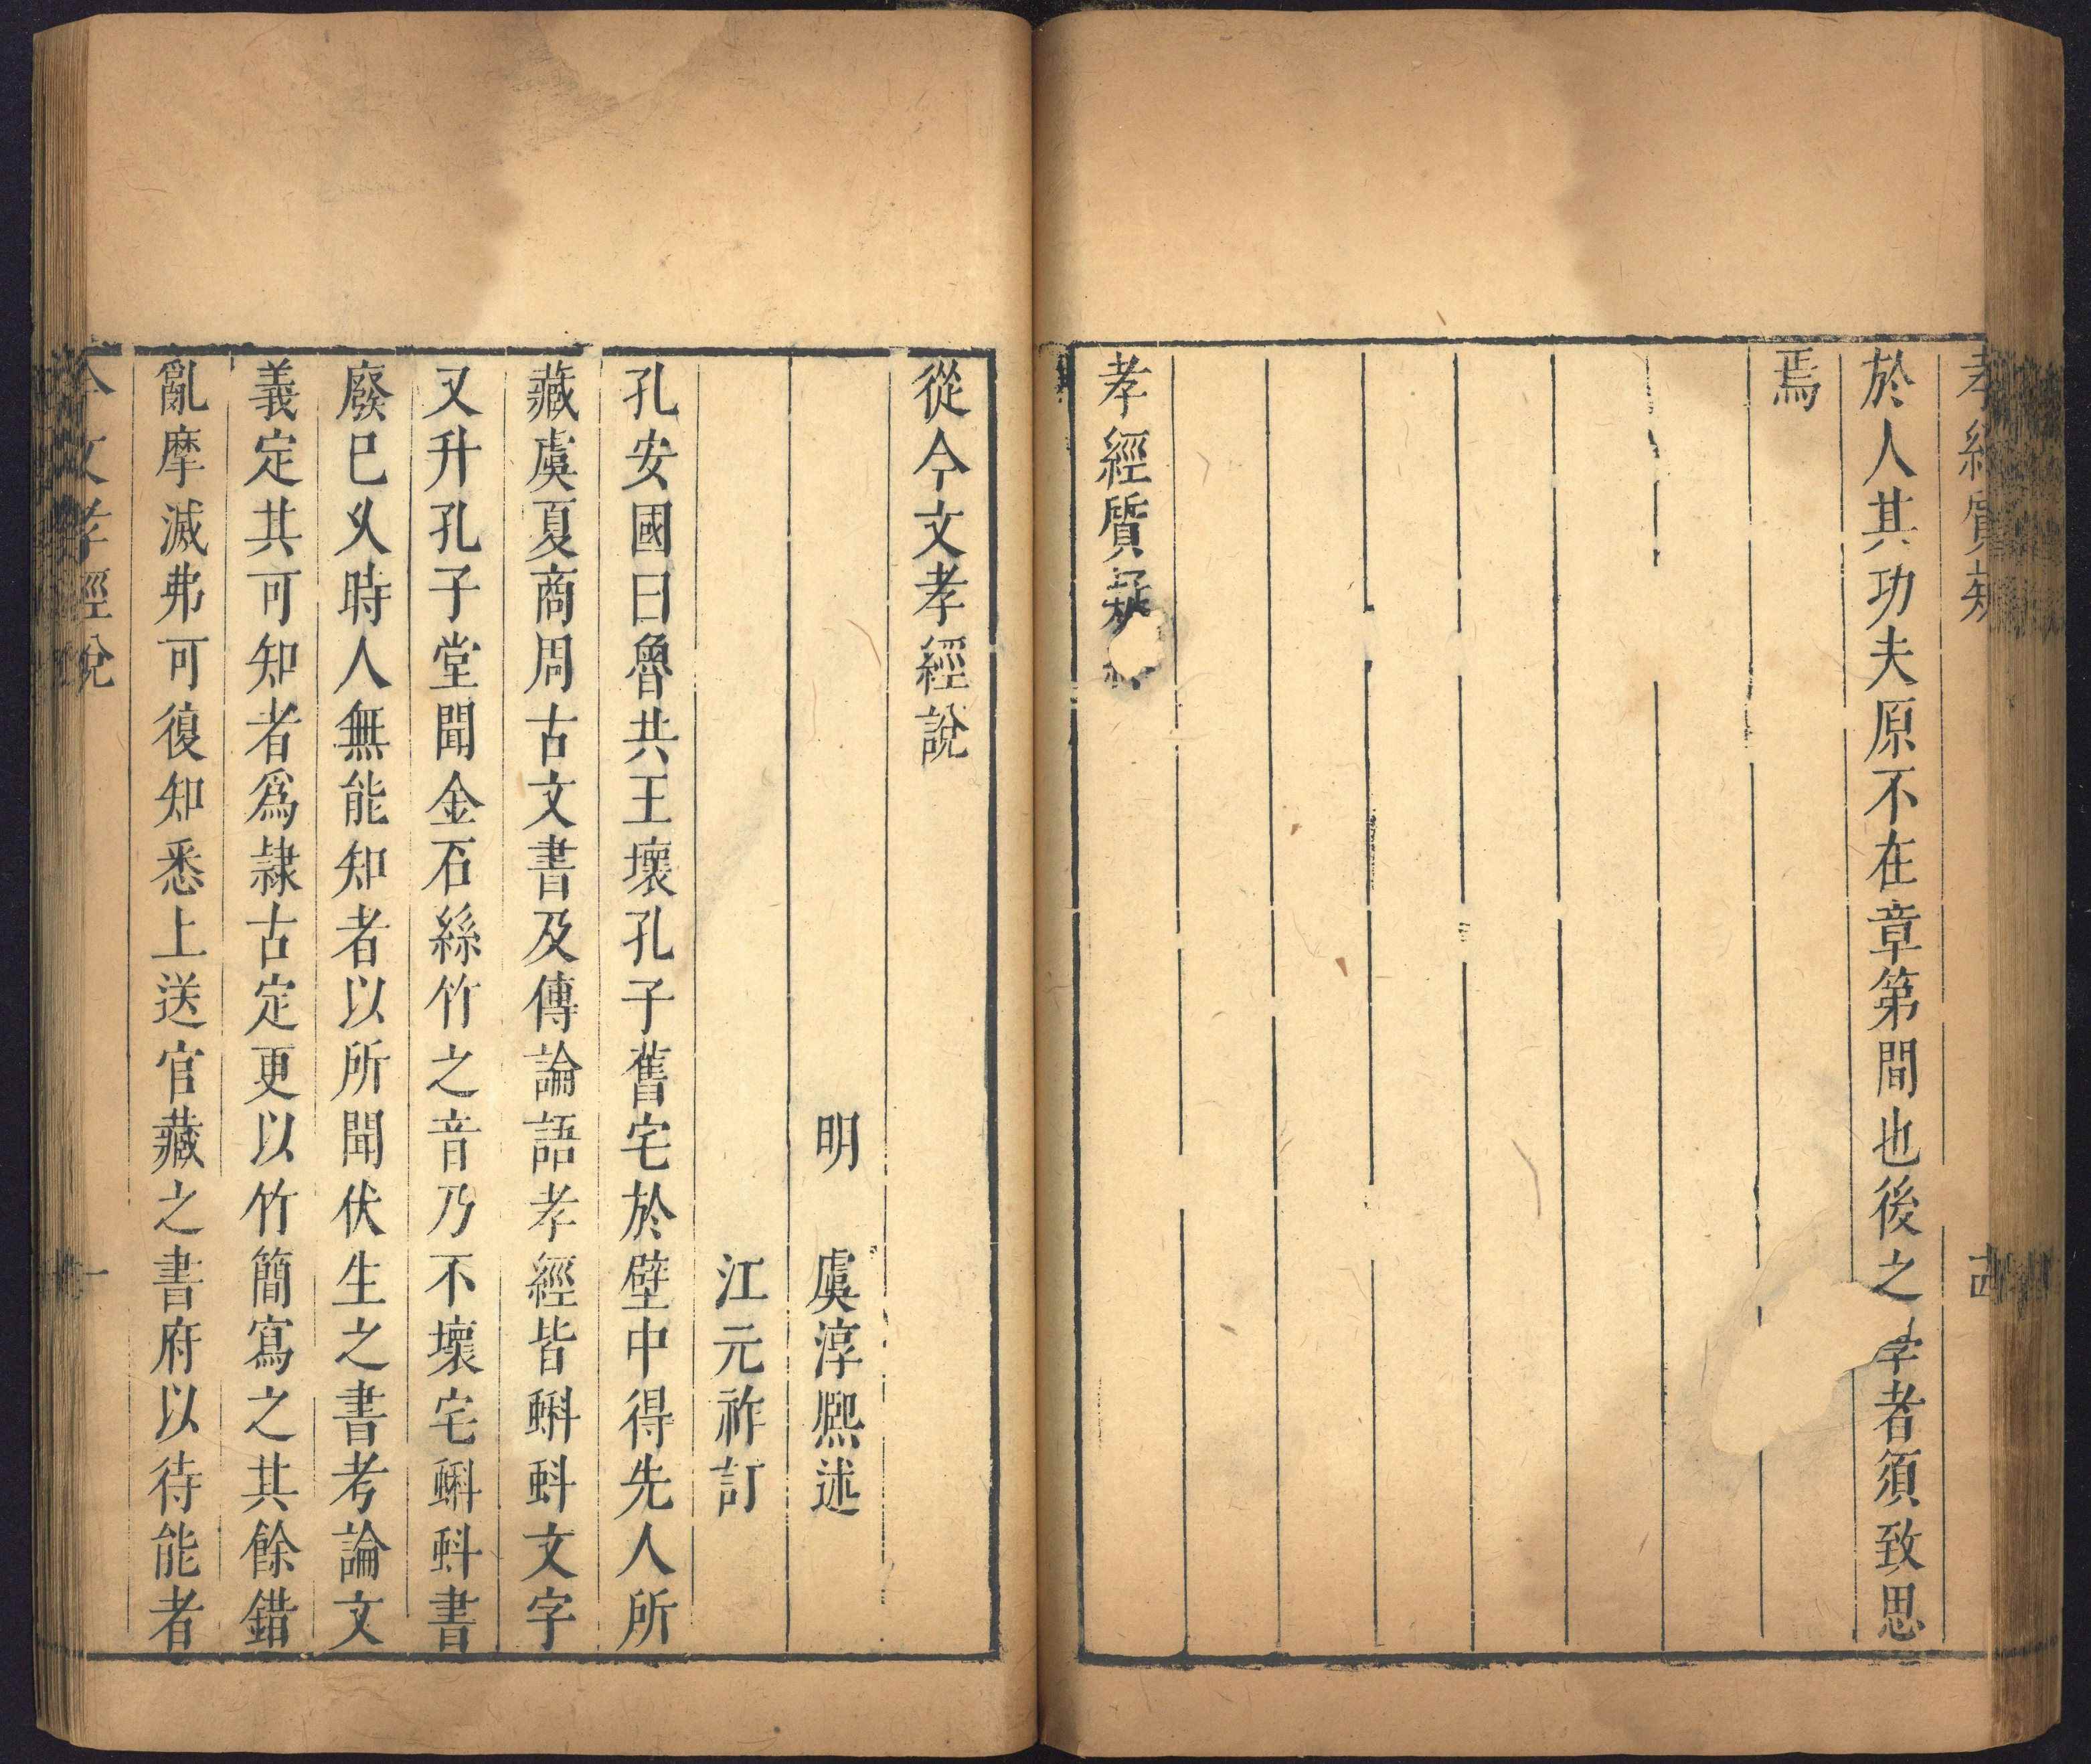 孝經質疑
古
於人其功夫原不在章第間也後之學者須致思
焉
孝經質疑終
從今文孝經說
明　虞淳熈述
江元祚訂
孔安國曰魯共王壞孔子舊宅於壁中得先人所
藏虞夏商周古文書及傳論語孝經皆蝌蚪文字
又升孔子堂聞金石絲竹之音乃不壞宅蝌蚪書
廢巳乆時人無能知者以所聞伏生之書考論文
義定其可知者爲隷古定更以竹簡寫之其餘錯
亂摩滅弗可復知悉上送官藏之書府以待能者
今文孝經說
一